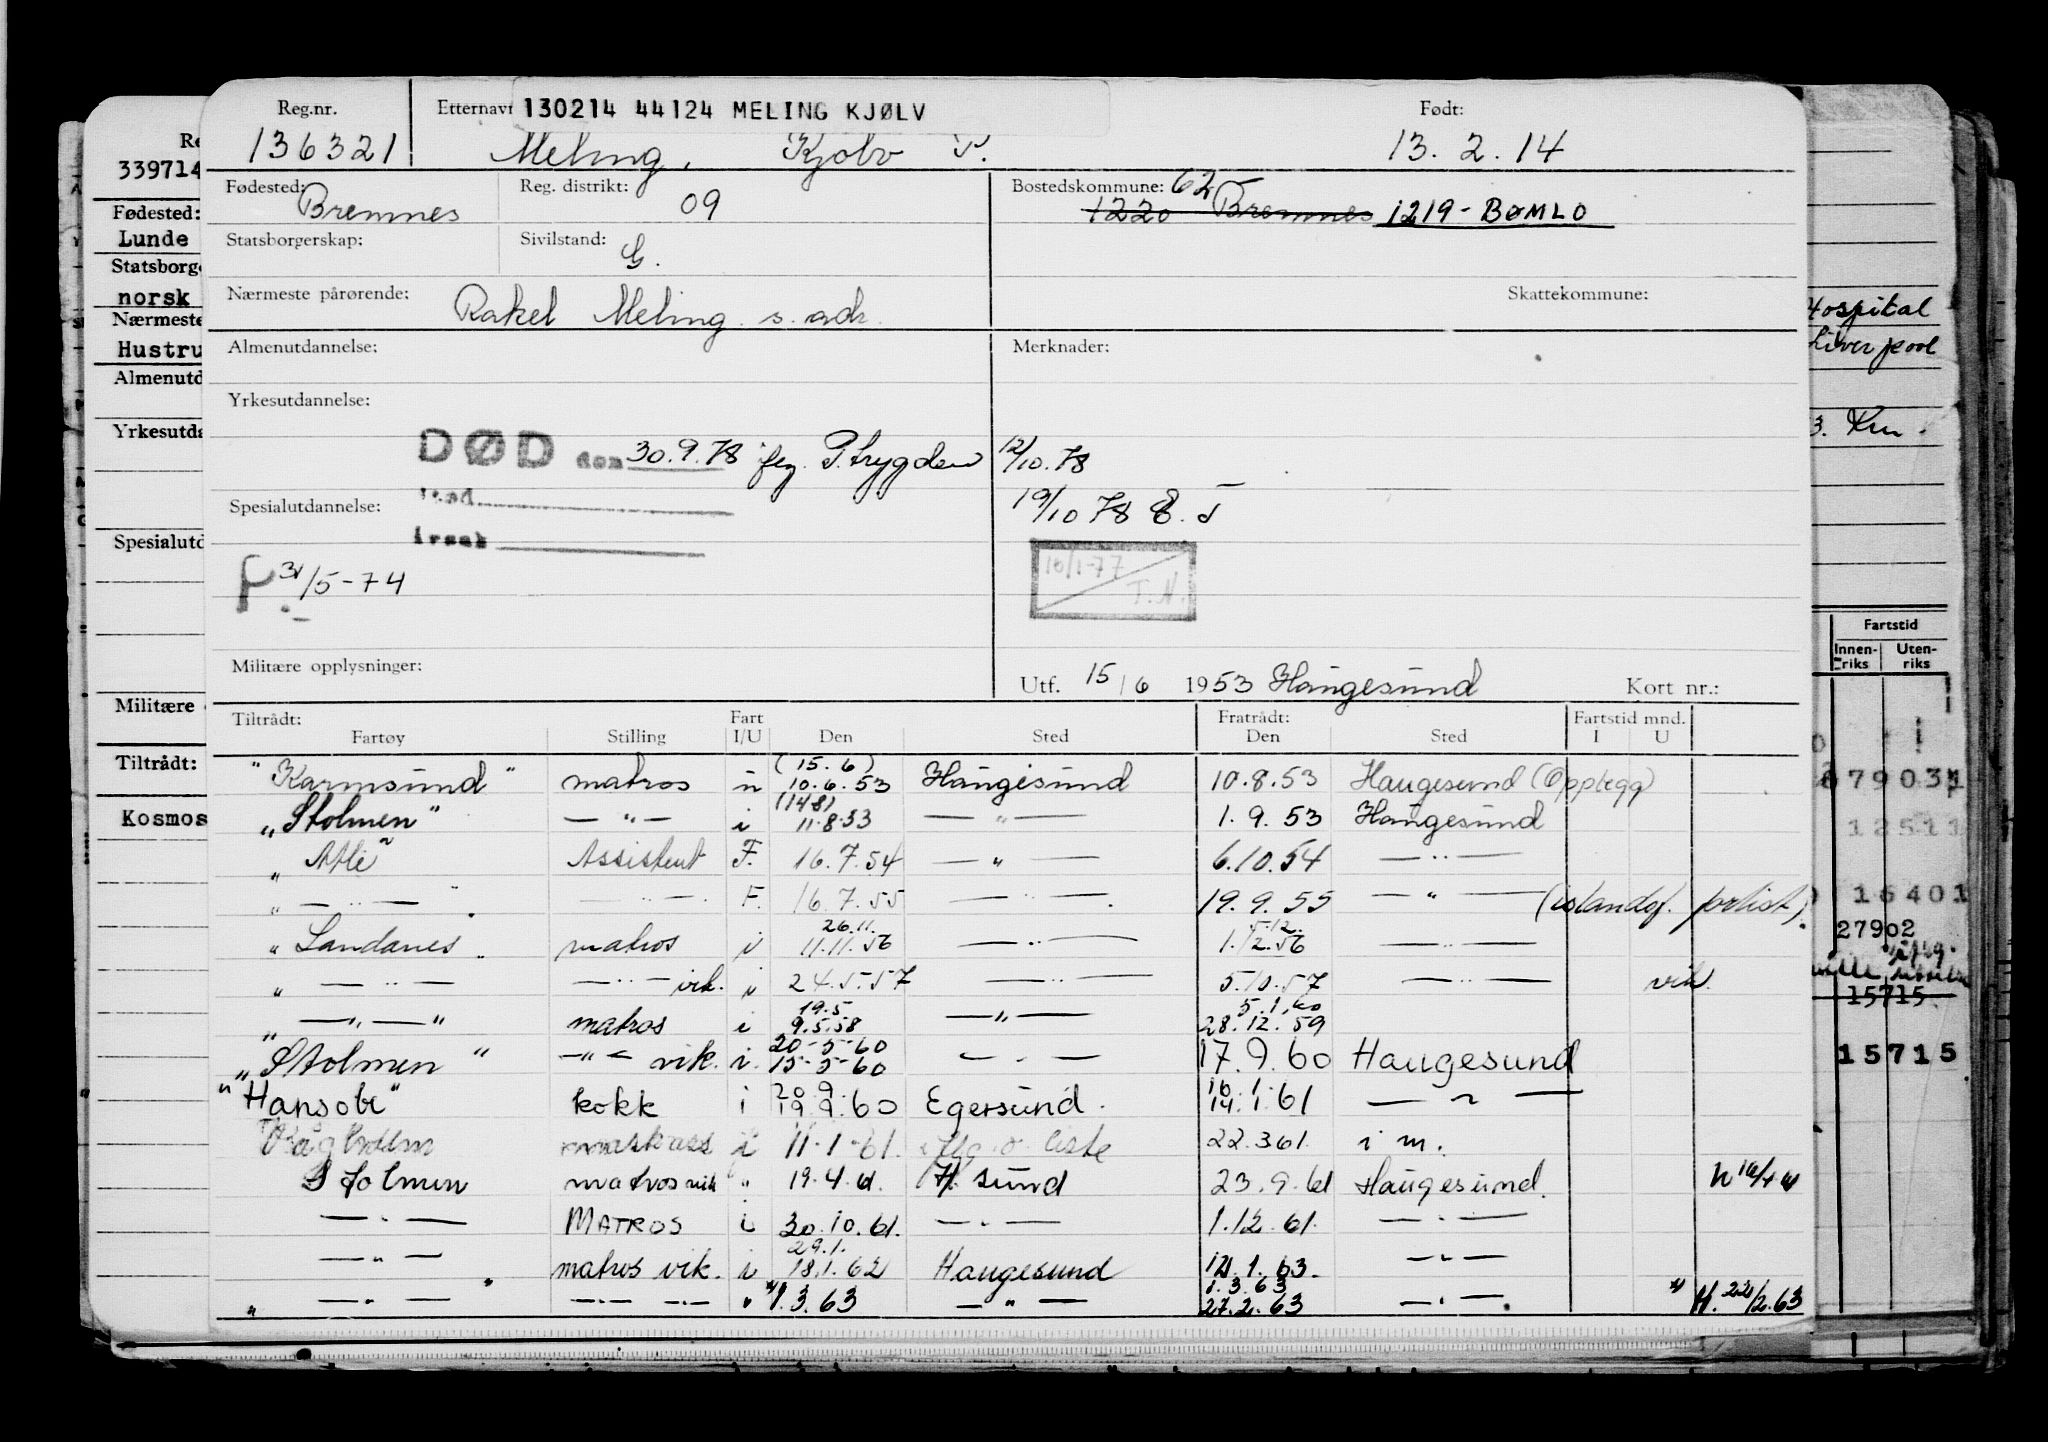 Reg.nr. Etternavn 130214 44124 MELING KJØLV Født:
136321 Meling, Kjølv 13. 2. 14
Fødested: Reg. distrikt: Bostedskommune: 62
Bremnes 09 1220 Bremnes 1219 - BØMLO
Statsborgerskap: Sivilstand: G.
Nærmeste pårørende: Skattekommune:
Rakel Meling s. adr.
Almenutdannelse: Merknader:
Yrkesutdannelse:
DØD den 30.9.78 flg. P. trygden 12/10.78
Spesialutdannelse: sted 19/10 78
årsak
F 31/5-74 10/1-77 T.N.
Militære opplysninger:
Utf. 15/6 1953 Haugesund Kort nr.:
Tiltrådt: Fart Fratrådt: Fartstid mnd.
Fartøy Stilling I/U Den Sted Den Sted I U
(15.6)
"Karmsund" matros u 10.6.53 Haugesund 10.8.53 Haugesund (Opplegg)
(14/8)
"Stolmen" — " — i 11.8.53 — " — 1. 9. 53 Haugesund
" Atle " Assistent F. 16.7.54 — " — 6.10.54 — " —
" — " — " — " — F. 16.7.55 — " — 19.9.55 — " — (islandsf. prlist).
26.11. 5.12.
" Sandanes " matros i 11.11.56 — " — 1.12.56 — " —
" — " — — " — vik. i 24.5.57 — " — 5.10.57 — " — vik.
19.5 5.1.60
" — " — " matros i 9.5.58 — " — 28.12.59
20-5-60
"Stolmen" — " — vik. i. 15-5-60 — " — 17.9.60 Haugesund
20.9. 16.1.
"Hansobi" kokk i 19.9.60 Egersund. 14.1.61 — " —
Vågholm i 11-1-61. liste 22.361. i m.
Stolmen matros vik " 19.4.61. H.sund 23.9.61 Haugesund.
— " — MATROS i 30.10.61. — " — 1.12.61. — " —
29.1.
— " — matros vik. i 18.1.62 Haugesund 12.1.63. — " —
1.3.63
" — " — — " — " 1.3.63 — " — 27.2.63 — " — H. 22/2.63
339714
Fødested:
Lunde
Statsborge
norsk
Nærmeste
Hustru
Almenutd
Yrkesutda
Spesialutd
Militære
Tiltrådt:
Kosmos
Hospital
Liverpool
3. Km.
Fartstid
Innen-riks Uten-riks
79031
12511
16401
27902
15715
15715